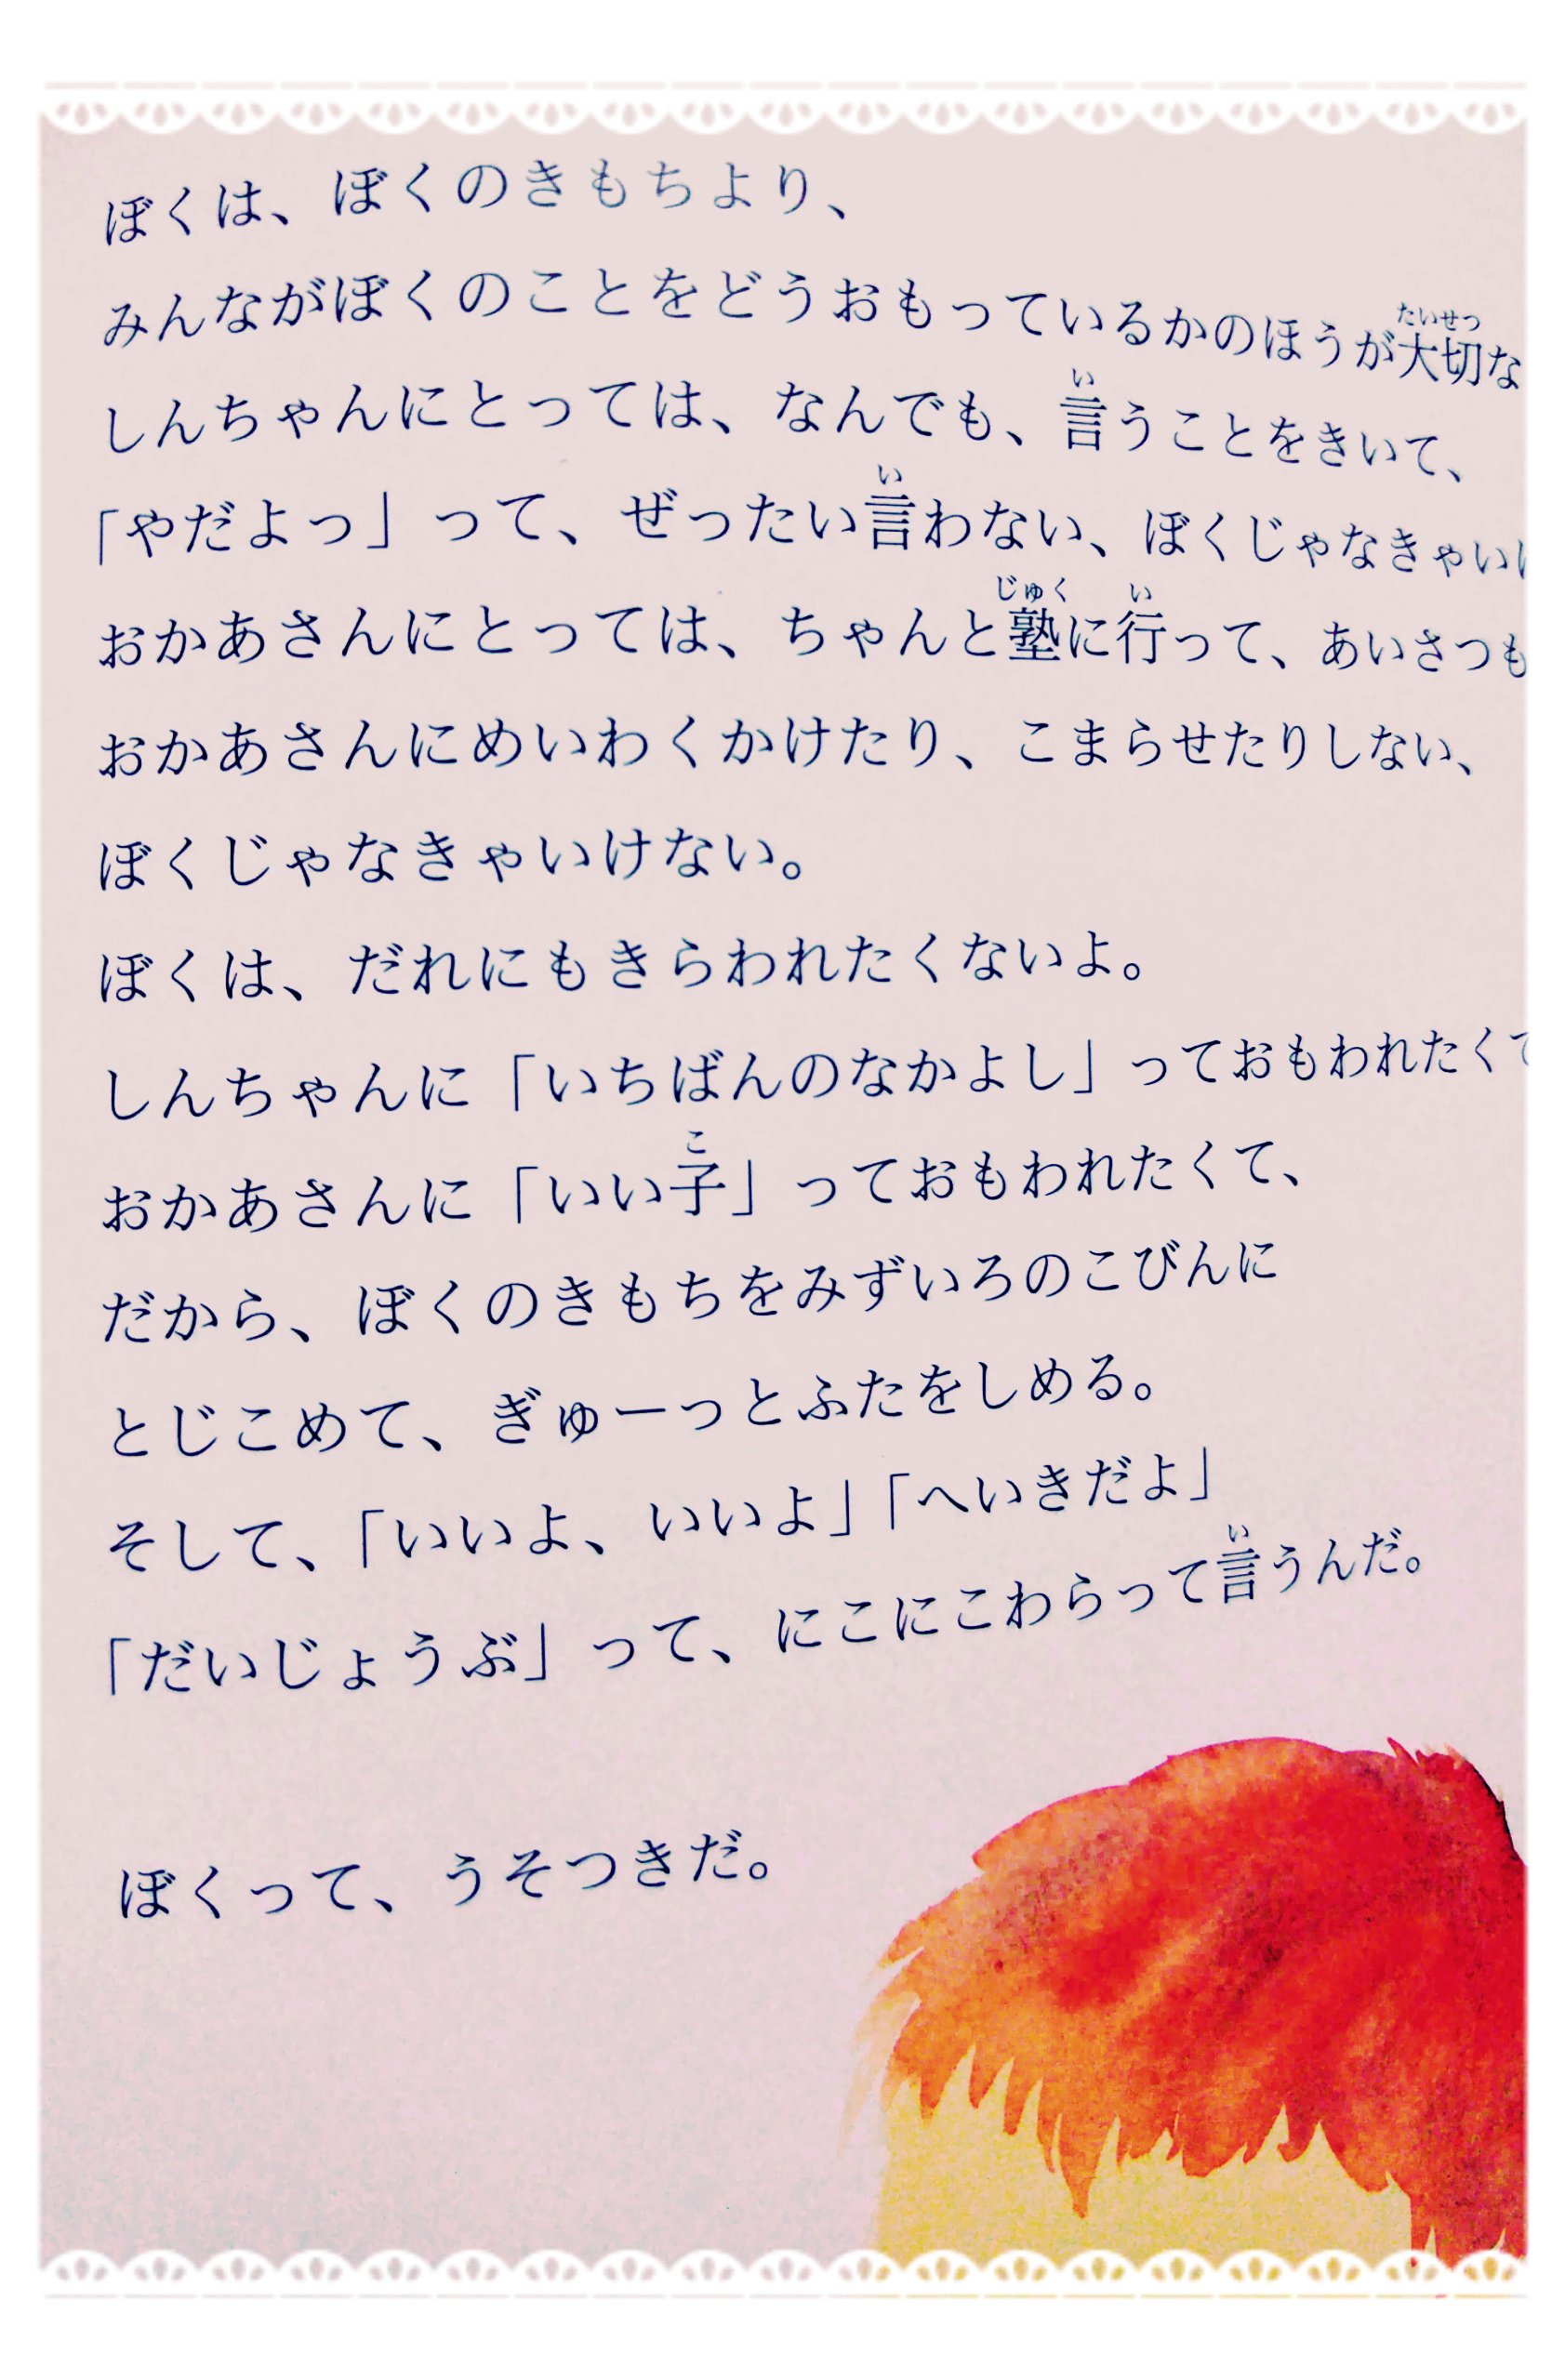 ぼくは、ぼくのきもちより、
みんながぼくのことをどうおもっているかのほうが大切な
しんちゃんにとっては、なんでも、言うことをきいて、
「やだよっ」って、ぜったい言わない、ぼくじゃなきゃい
おかあさんにとっては、ちゃんと塾に行って、あいさつも
おかあさんにめいわくかけたり、こまらせたりしない、
ぼくじゃなきゃいけない。
ぼくは、だれにもきらわれたくないよ。
しんちゃんに「いちばんのなかよし」っておもわれたくて
おかあさんに「いい子」っておもわれたくて、
だから、ぼくのきもちをみずいろのこびんに
とじこめて、ぎゅーっとふたをしめる。
そして、「いいよ、いいよ」「へいきだよ」
「だいじょうぶ」って、にこにこわらって言うんだ。
ぼくって、うそつきだ。